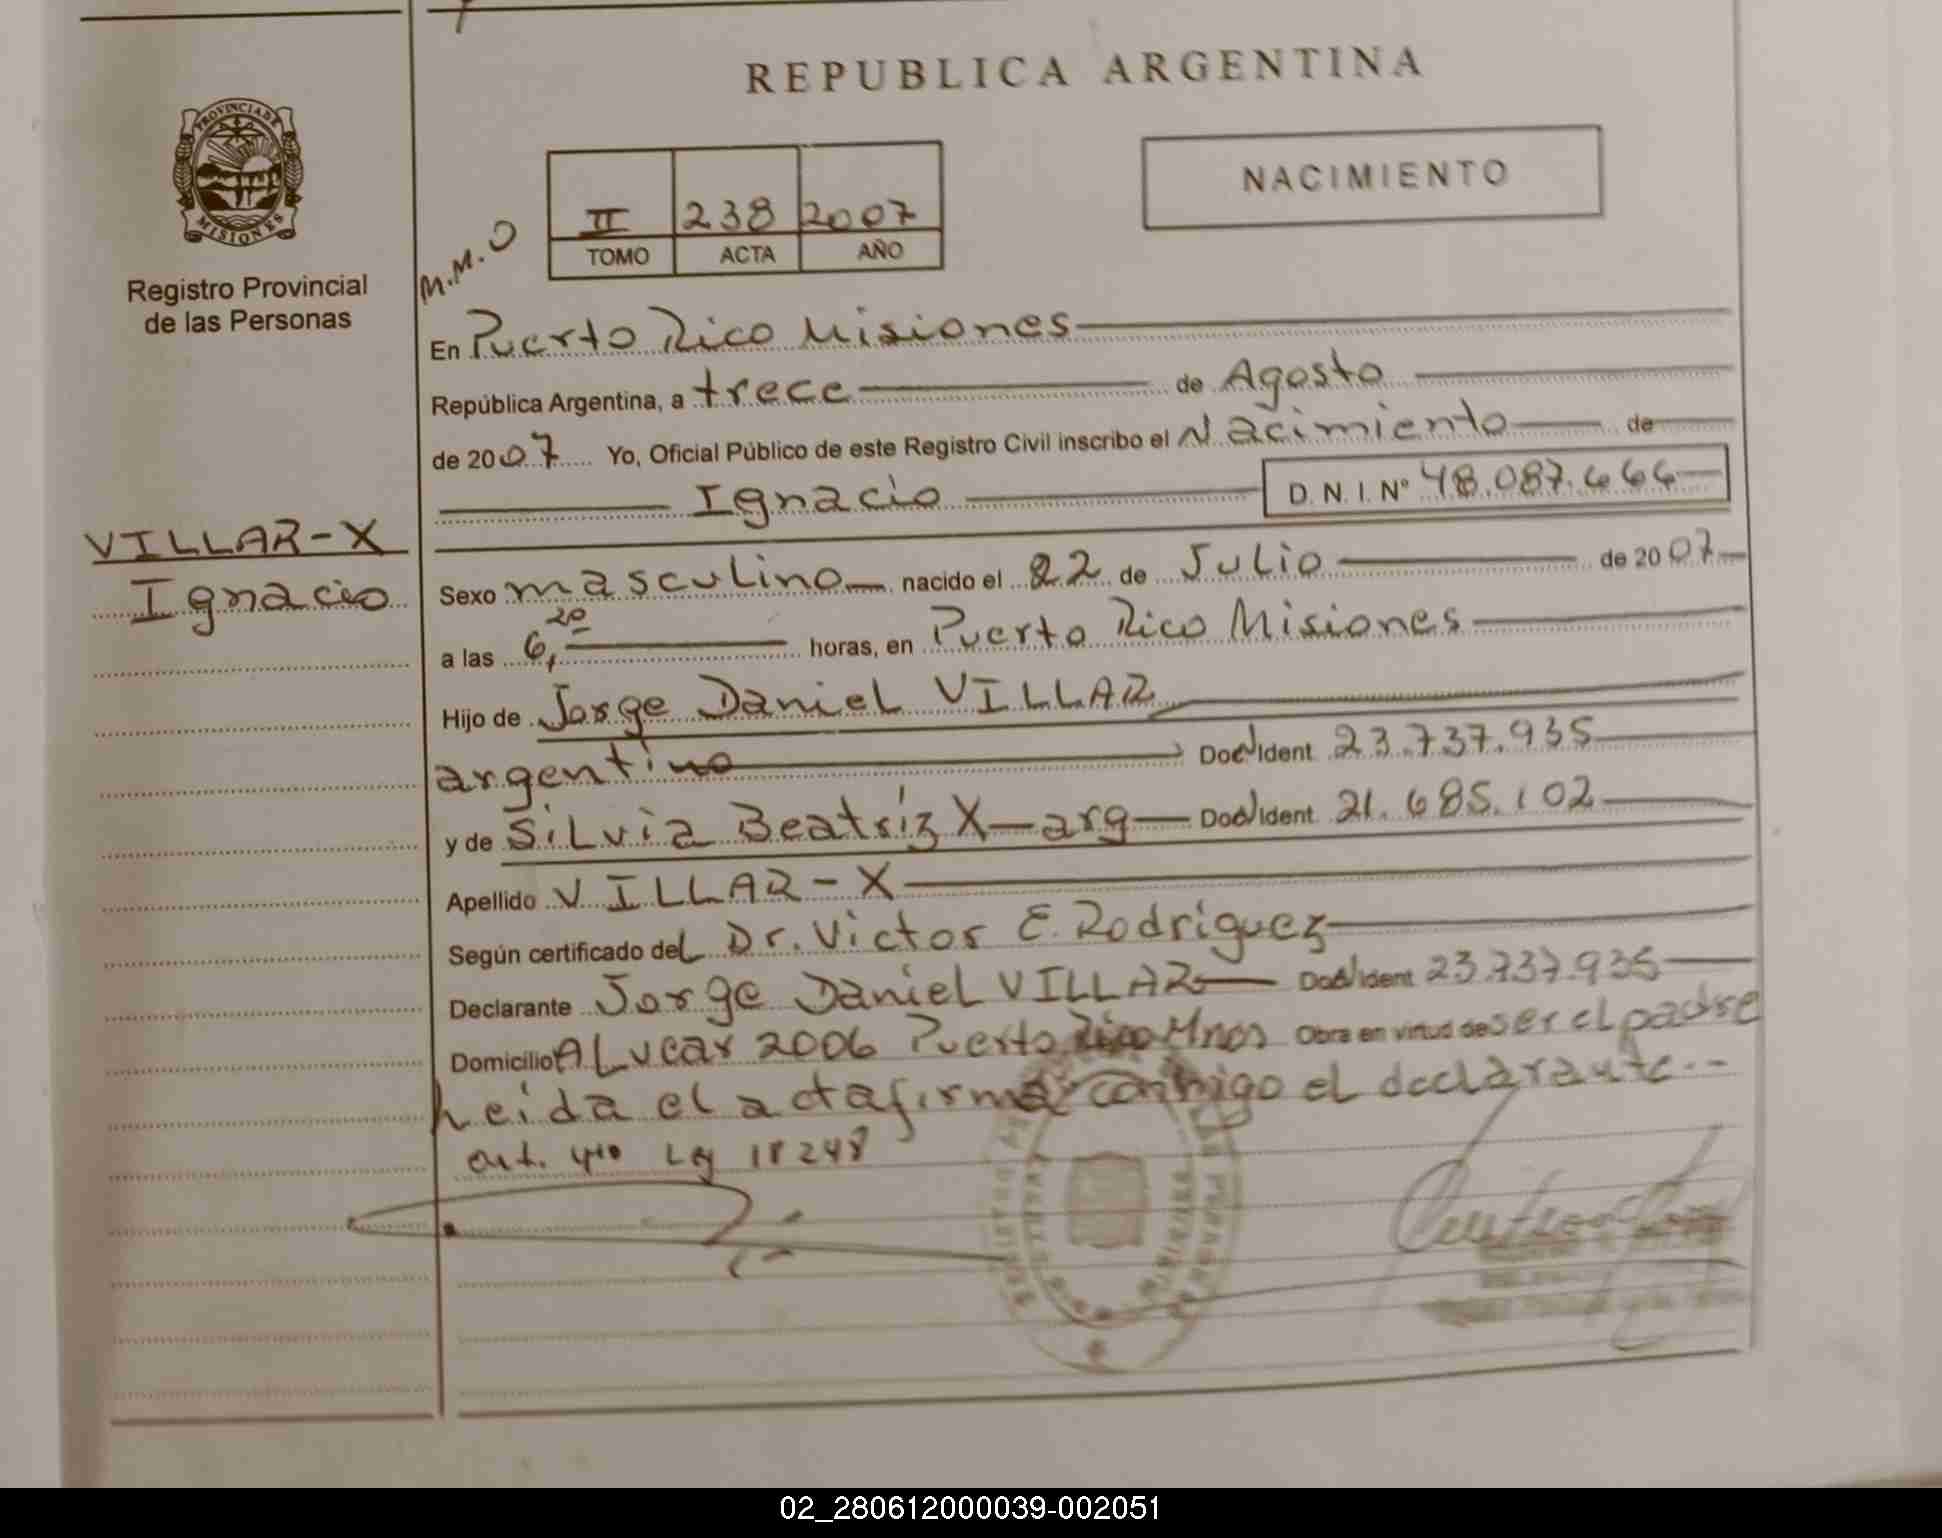 REPUBLICA ARGENTINA
PROVINCIA DE
MISIONES
Registro Provincial
de las Personas
M.M.O
II 238 2007
TOMO ACTA AÑO
NACIMIENTO
En Puerto Rico Misiones
República Argentina, a trece de Agosto
de 2007 Yo, Oficial Público de este Registro Civil inscribo el Nacimiento de
Ignacio D. N. I. Nº 48.087.464
VILLAR-X
Ignacio
Sexo masculino nacido el 22 de Julio de 2007
a las 6,20 horas, en Puerto Rico Misiones
Hijo de Jorge Daniel VILLAR
argentino Doc Ident 23.737.935
y de Silvia Beatríz X-arg- Doc Ident 21.685.102
Apellido VILLAR-X
Según certificado del Dr. Victor E. Rodríguez
Declarante Jorge Daniel VILLAR Doc Ident 23.737.935
Domicilio A Lucar 2006 Puerto Rico Mnes Obra en virtud de ser el padre
Leida el acta firma conmigo el declarante.--
art. 4to Ley 18248
02_280612000039-002051